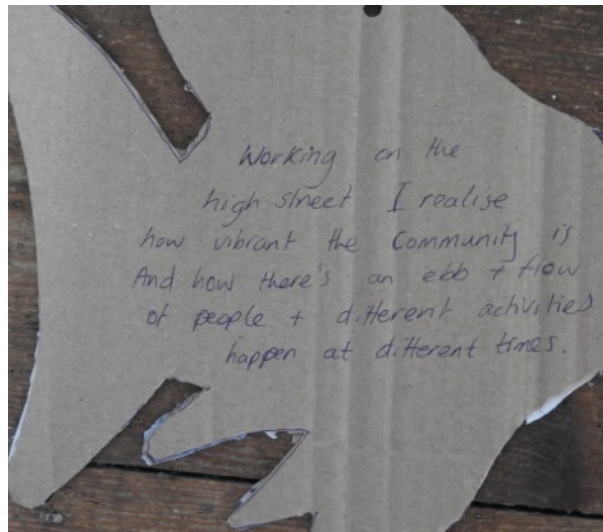 Working on the
high street I realise
how vibrant the Community is
And how there's an ebb + flow
of people + different activities
happen at different times.